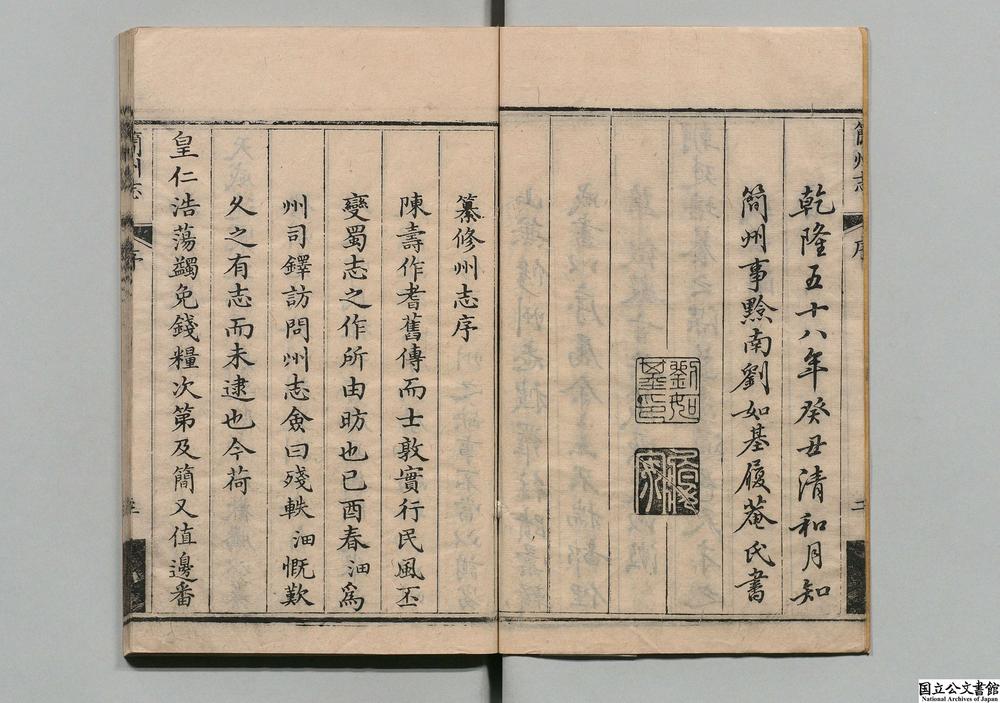 簡州志
序
乾隆五十八年癸丑清和月知
簡州事黔南劉如基履菴氏書
劉如基印
纂修州志序
陳壽作耆舊傳而士敦實行民風丕
變蜀志之作所由昉也己酉春沺爲
州司鐸訪問州志僉曰殘軼沺慨歎
久之有志而未逮也今荷
皇仁浩蕩蠲免錢糧次第及簡又值邊番
簡州志
序
国立公文書館
National Archives of Japan